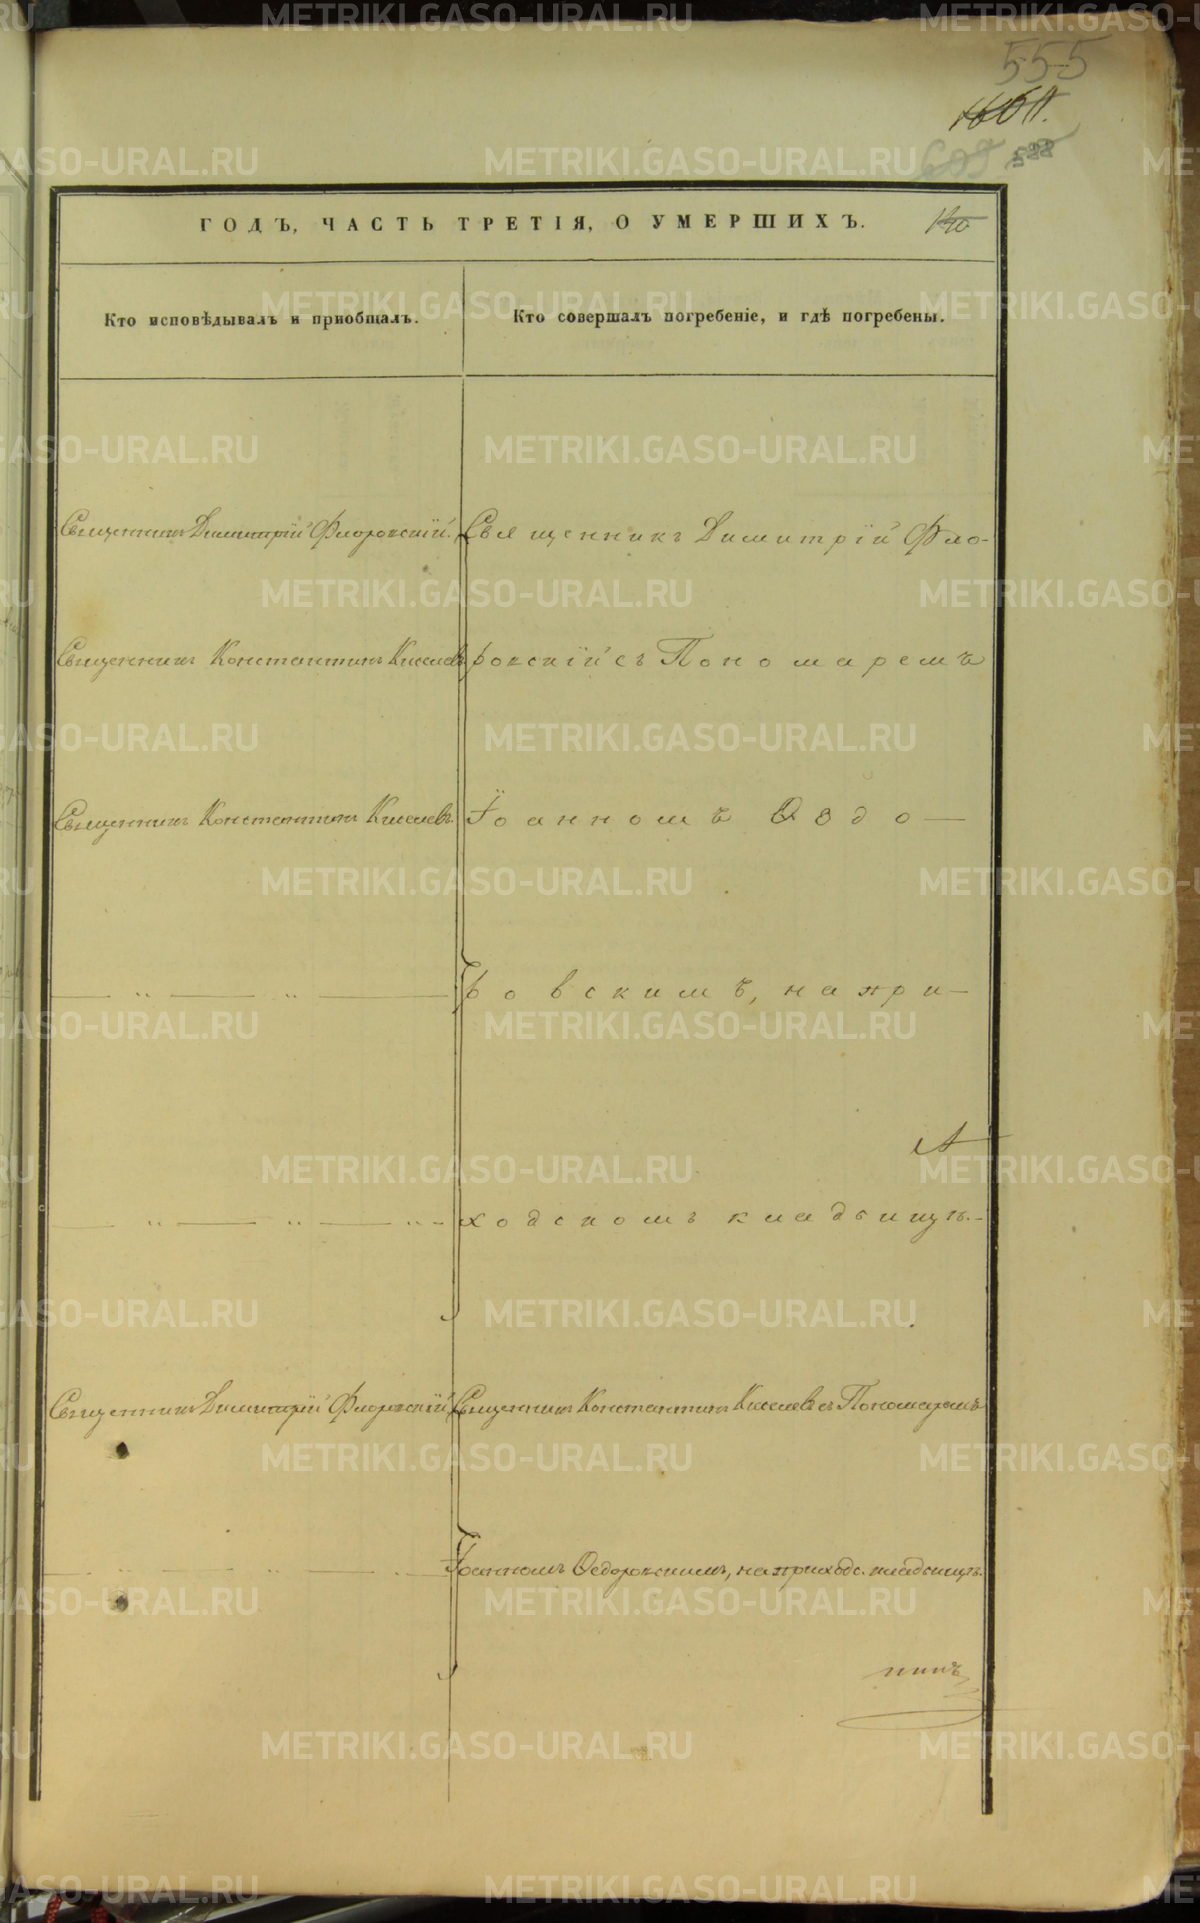 555
1661.
609 588
ГОДЪ, ЧАСТЬ ТРЕТІЯ, О УМЕРШИХЪ.
Кто исповѣдывалъ и пріобщалъ.
Кто совершалъ погребеніе, и гдѣ погребены.
Священникъ Димитрій Флоровскій.
Священникъ Димитрій Фло-
Священникъ Константинъ Киселевъ
ровскій съ Пономаремъ
Священникъ Константинъ Киселевъ.
Іоанномъ Ѳедо—
ровскимъ, на при—
А
ходскомъ кладбищѣ.
Священникъ Димитрій Флоровскій.
Священникъ Константинъ Киселевъ съ Пономаремъ
Іоанномъ Ѳедоровскимъ, на приходс. кладбищѣ.
METRIKI.GASO-URAL.RU